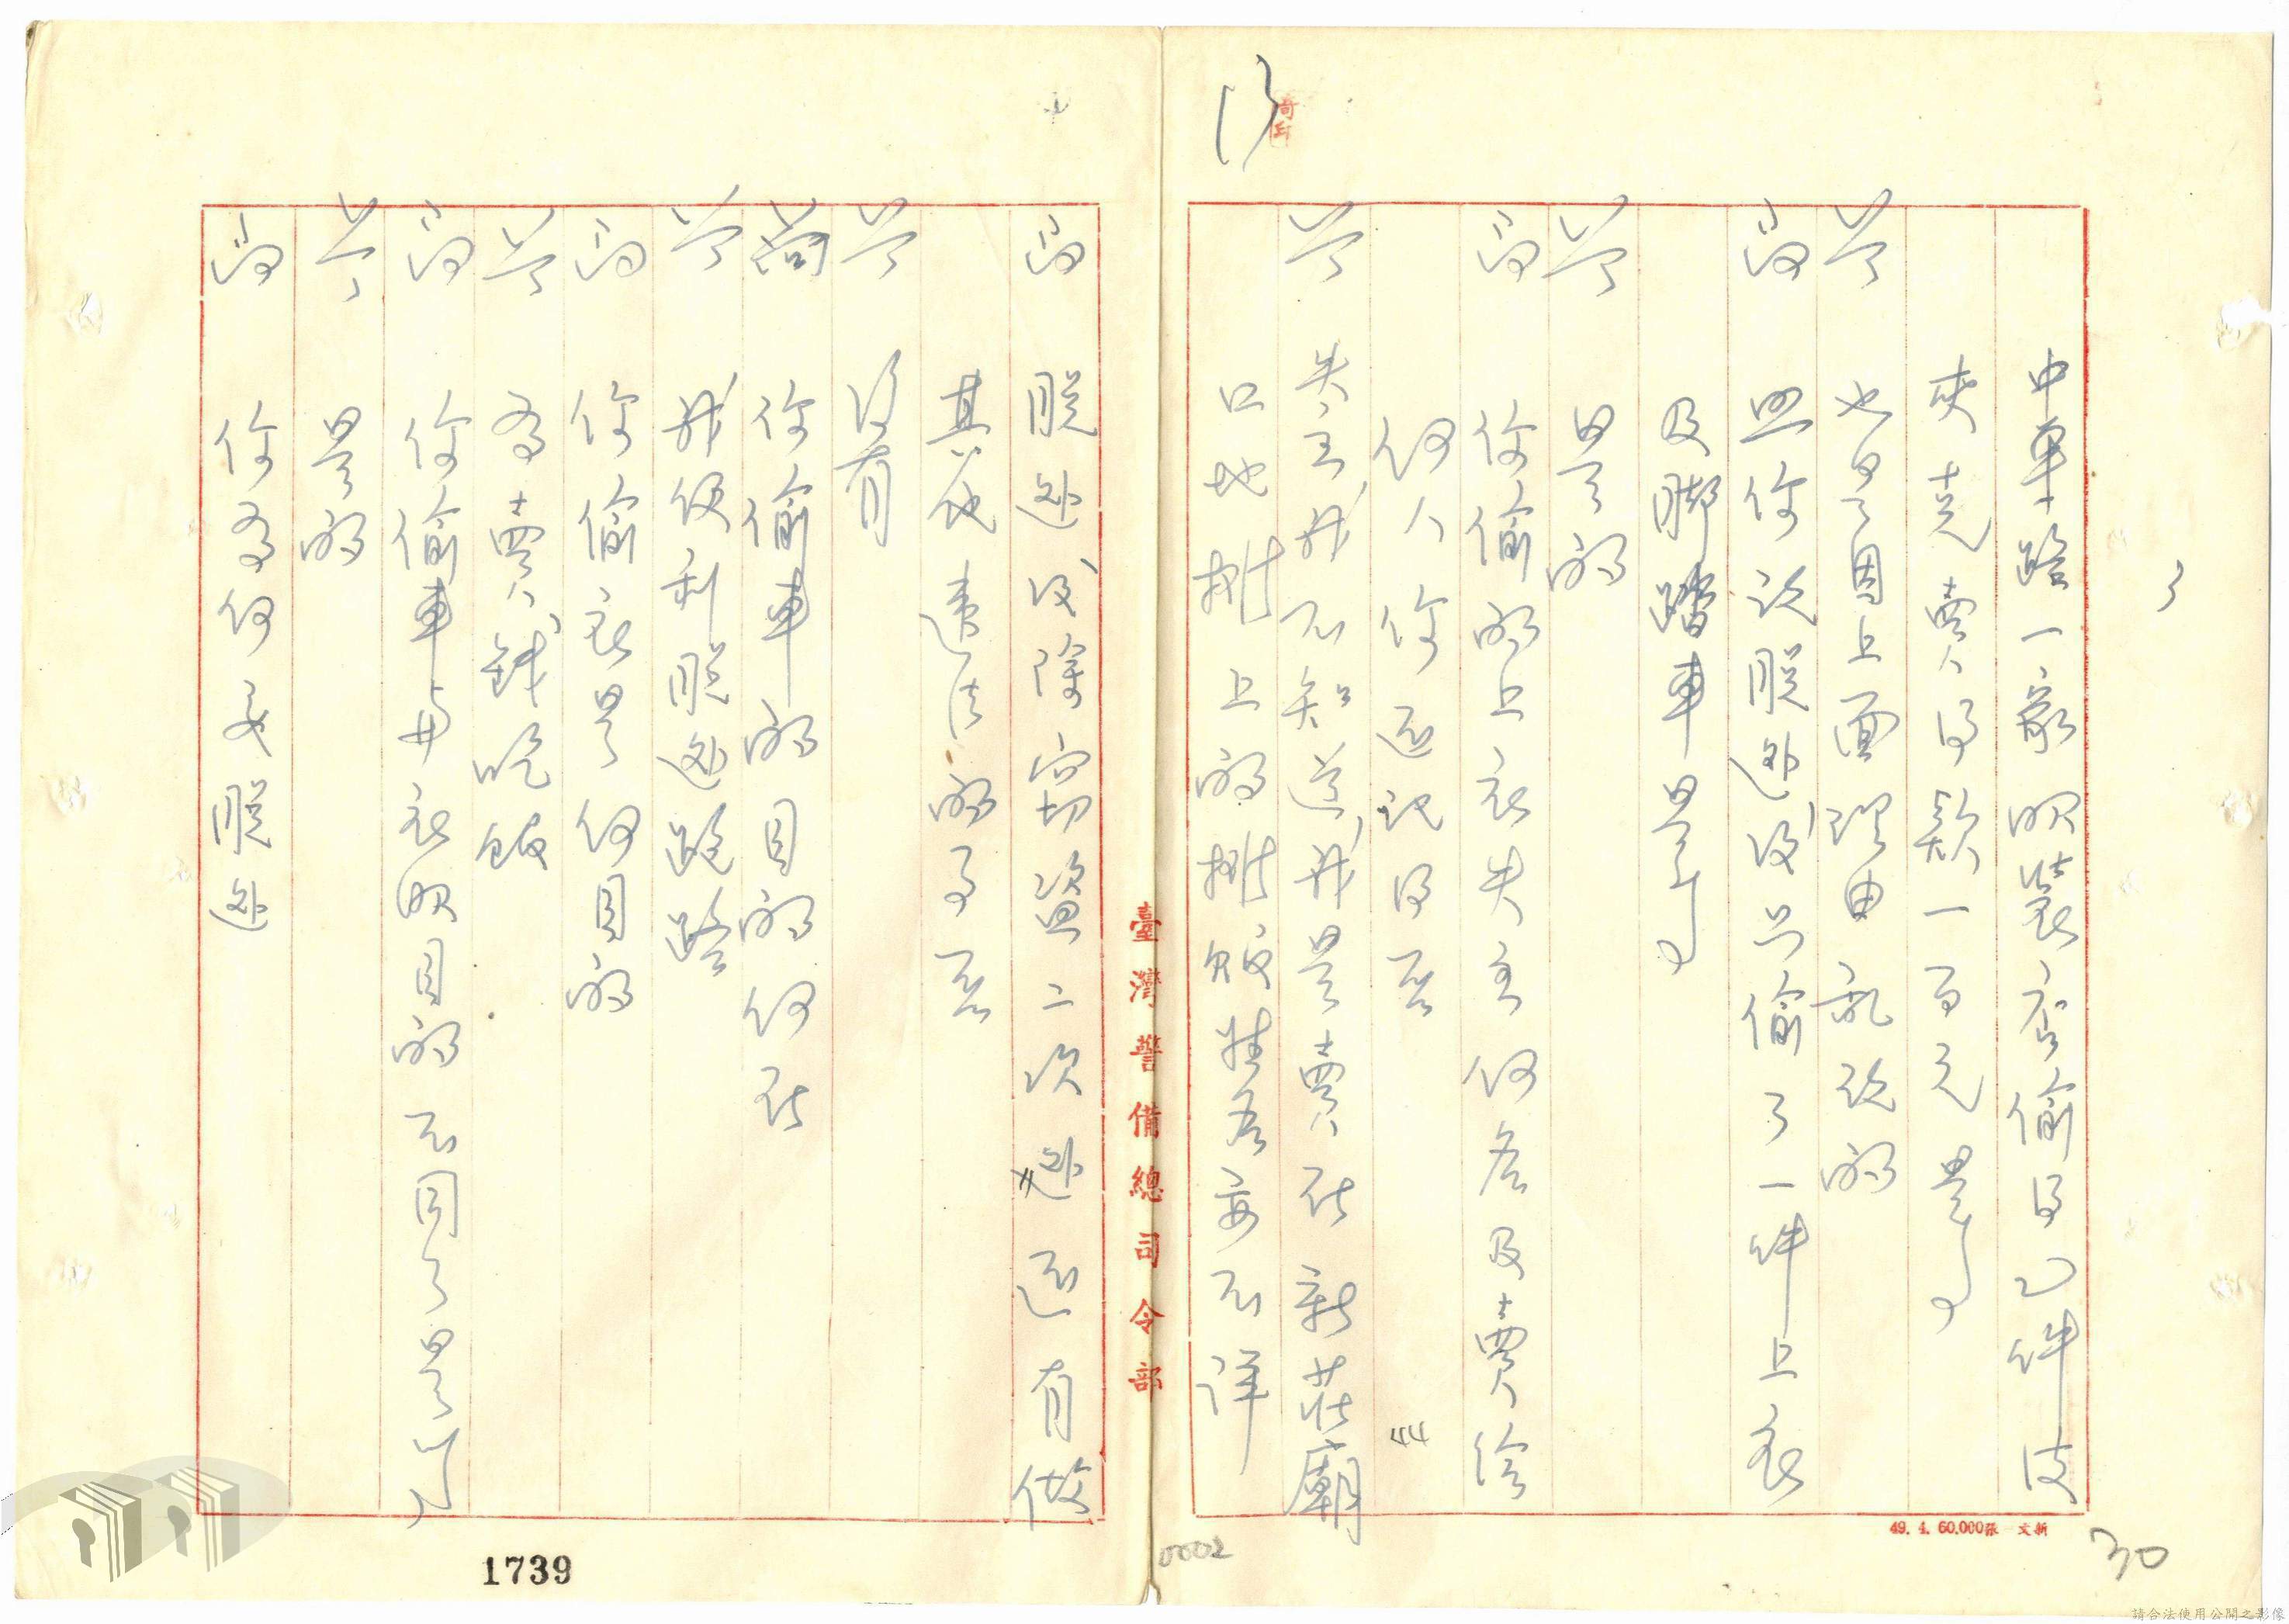 中車路一家服裝店偷的乙件皮
夾克賣的款一百元是嗎
答 也是因上面理由說的
問 與你說脫逃後只偷了一件上衣
及腳踏車是嗎
答 是的
問 你偷的上衣失主何名及賣給
何人你還記得否
答 失主我不知道我是賣在新莊廟
口地攤上的攤販姓名丙不詳
問 脫逃後除竊盜二次外還有做
其他違法的事否
答 沒有
問 你偷車的目的何在
答 我做利脫逃跑路
問 你偷衣是何目的
答 為賣錢吃飯
問 你偷車與衣服目的不同是嗎
答 是的
問 你為何要脫逃
臺灣警備總司令部
49.4.60.000張 文新
1739
0002
30
13
3
請合法使用公開之影像